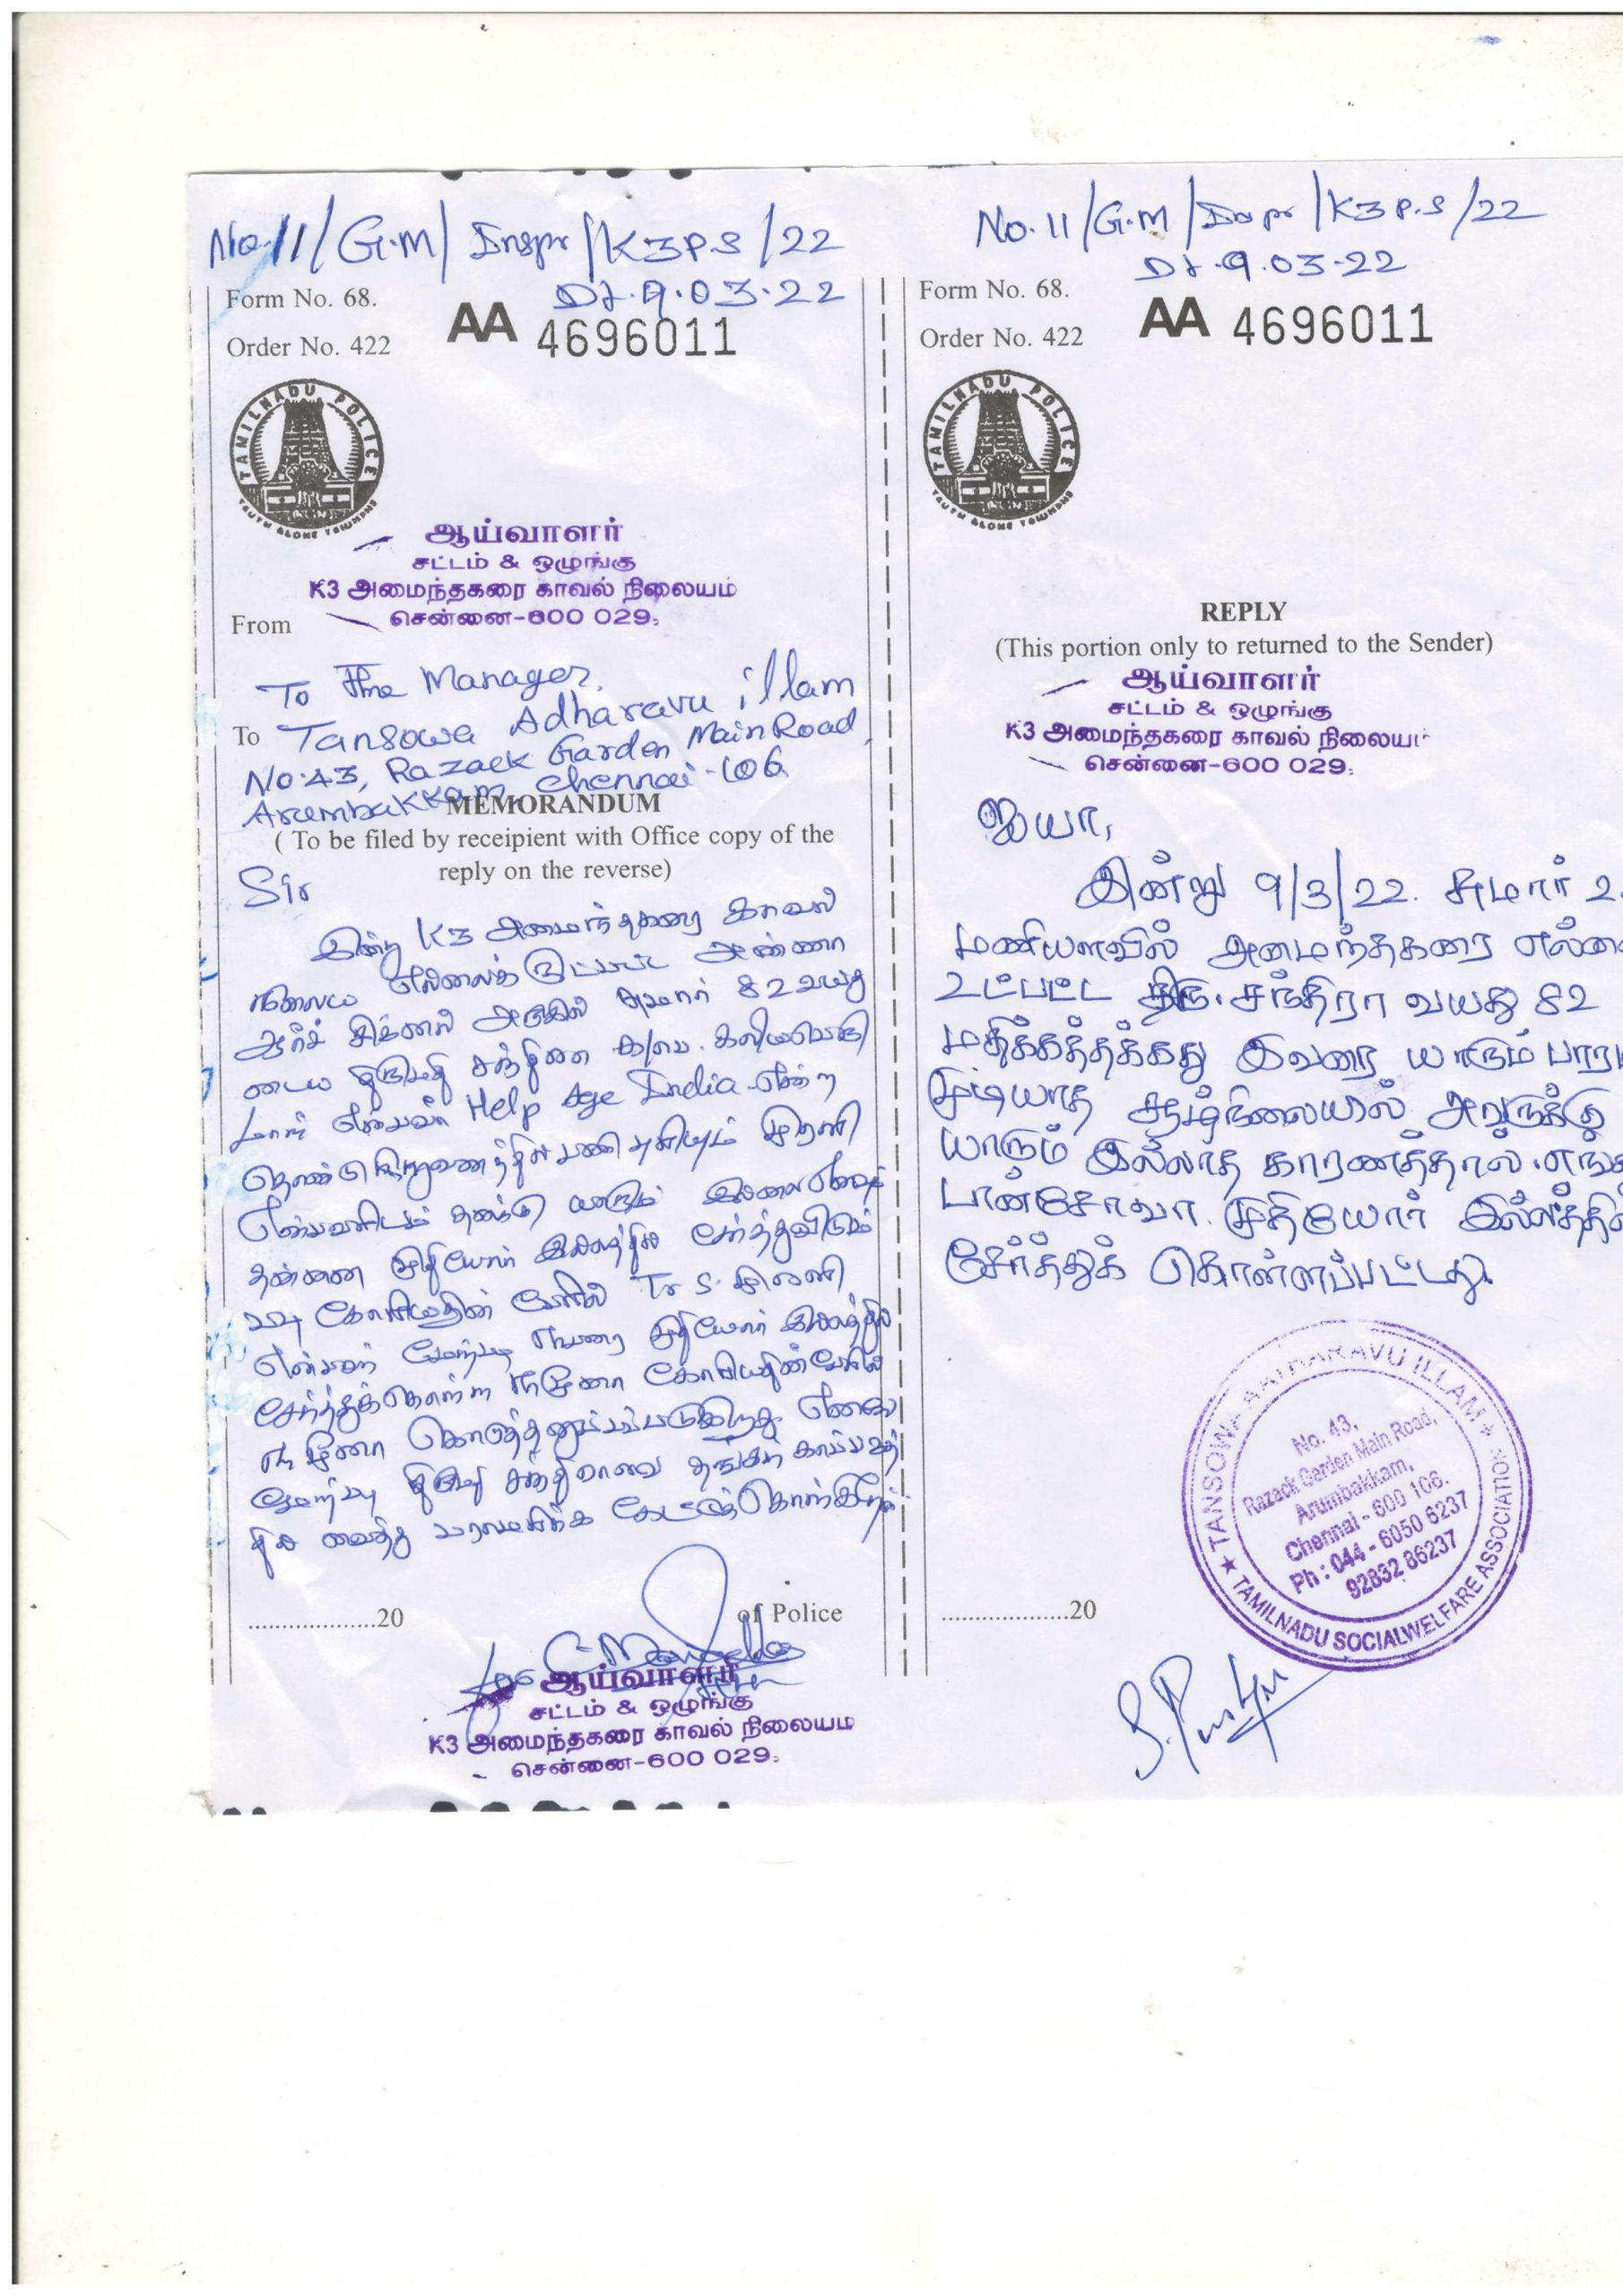 No. 11/G.M/Inspr/K3 P.S/22
Dt. 9.03.22
Form No. 68.
Order No. 422
AA 4696011
TAMILNADU POLICE
TRUTH ALONE TRIUMPHS
ஆய்வாளர்
சட்டம் & ஒழுங்கு
K3 அமைந்தகரை காவல் நிலையம்
சென்னை-600 029.
From
To The Manager,
To Tansowa Adharavu illam
No:43, Razack Garden Main Road,
Arumbakkam, Chennai-106
MEMORANDUM
( To be filed by receipient with Office copy of the
reply on the reverse)
Sir
இன்று K3 அமைந்தகரை காவல்
நிலைய எல்லைக்குட்பட்ட அண்ணா
ஆர்ச் சிக்னல் அருகில் சுமார் 82 வயது
டைய திருமதி
Help Age India என்ற
தொண்டு நிறுவனத்தில் பணி புரியும்
என்பவரிடம் தனக்கு யாரும் இல்லை எனவும்
தன்னை முதியோர் இல்லத்தில் சேர்த்துவிடும்
படி கோரியதின் பேரில் Tr S.
என்பவர் மேற்படி நபரை முதியோர் இல்லத்தில்
சேர்த்துக்கொள்ள கோரியதின் பேரில்
கொடுத்தனுப்பப்படுகிறது. எனவே
மேற்படி திருமதி சந்திராவை தங்கள் காப்பகத்
தில் வைத்து பராமரிக்க கேட்டுக்கொள்கிறேன்.
..................20
of Police
ஆய்வாளர்
சட்டம் & ஒழுங்கு
K3 அமைந்தகரை காவல் நிலையம்
சென்னை-600 029.
No. 11/G.M/Inspr/K3 P.S/22
Dt. 9.03.22
Form No. 68.
Order No. 422
AA 4696011
TAMILNADU POLICE
TRUTH ALONE TRIUMPHS
REPLY
(This portion only to returned to the Sender)
ஆய்வாளர்
சட்டம் & ஒழுங்கு
K3 அமைந்தகரை காவல் நிலைய
சென்னை-600 029.
ஐயா,
இன்று 9/3/22. சுமார் 2
மணியளவில் அமைந்தகரை எல்லை
உட்பட்ட திரு. சந்திரா வயது 82
மதிக்கத்தக்கது இவரை யாரும்
முடியாத சூழ்நிலையால் அவருக்கு
யாரும் இல்லாத காரணத்தால்.
டான்சோவா. முதியோர் இல்லத்தில்
சேர்த்துக் கொள்ளப்பட்டது.
TANSOWA AATHARAVU ILLAM
No. 43,
Razack Garden Main Road,
Arumbakkam,
Chennai - 600 106.
Ph : 044 - 6050 6237
92832 86237
TAMILNADU SOCIAL WELFARE ASSOCIATION
...................20